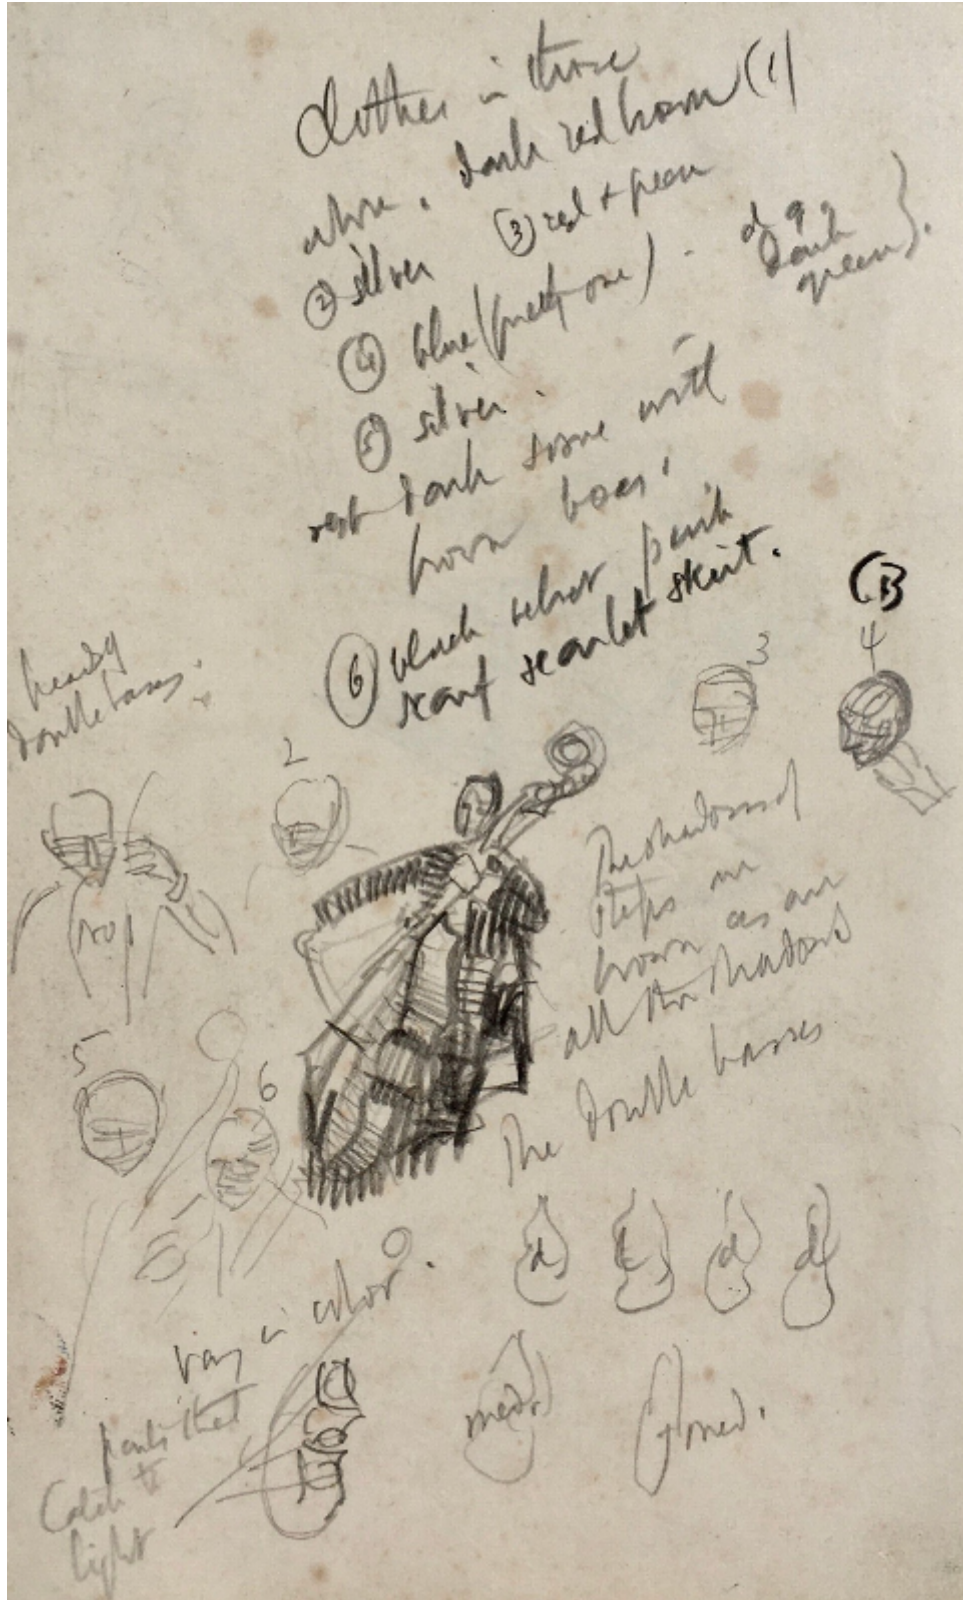 Clothes in those
above, dark red brown (1)
② silver ③ red + green
④ blue (pretty one) - d 9 9
dark
green).
⑤ silver.
rest dark some with
brown bows,
⑥ black velvet pink
scarf scarlet skirt.
(B
heads of
double basses.
2
3
4
5
6
The shadows of
steps are
brown as are
all the shadows
The double basses
d
d
d
vary in color.
med.
med.
parts that
Catch the
light